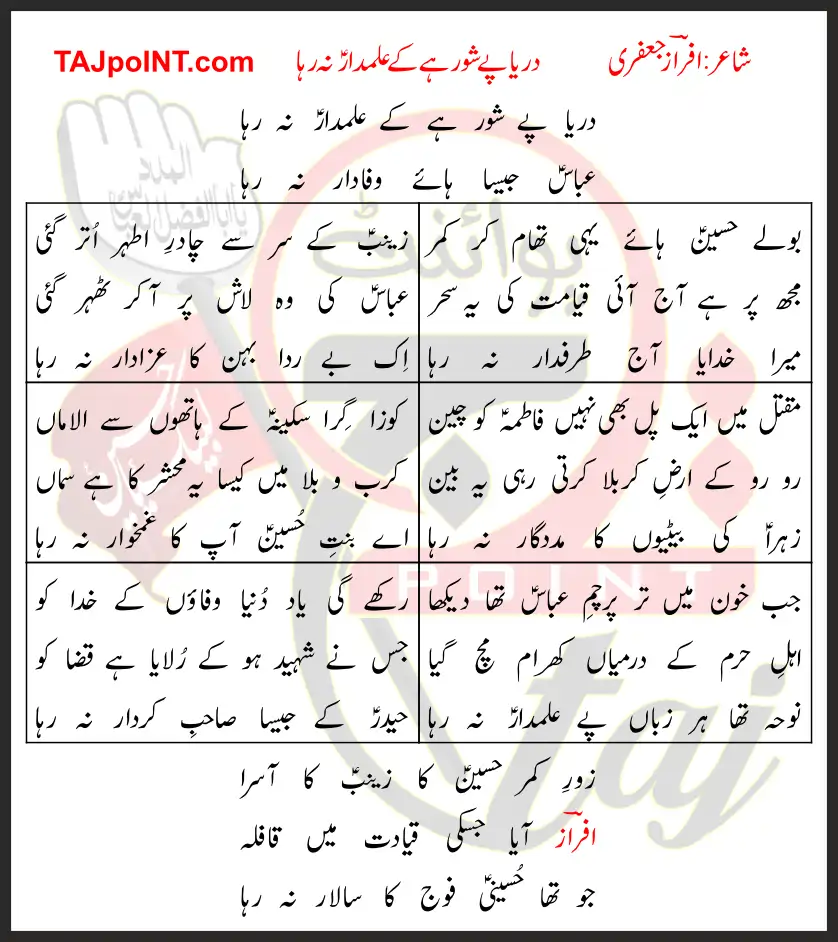 شاعر: افرازؔ جعفری دریا پے شور ہے کے علمدارؑ نہ رہا TAJpoINT.com
دریا پے شور ہے کے علمدارؑ نہ رہا
عباسؑ جیسا ہائے وفادار نہ رہا
بولے حسینؑ ہائے یہی تھام کر کمر
مجھ پر ہے آج آئی قیامت کی یہ سحر
میرا خدایا آج طرفدار نہ رہا
زینبؑ کے سر سے چادرِ اطہر اُتر گئی
عباسؑ کی وہ لاش پر آکر ٹھہر گئی
اِک بے ردا بہن کا عزادار نہ رہا
مقتل میں ایک پل بھی نہیں فاطمہؑ کو چین
رو رو کے ارضِ کربلا کرتی رہی یہ بین
زہراؑ کی بیٹیوں کا مددگار نہ رہا
کوزا گِرا سکینہؑ کے ہاتھوں سے الاماں
کرب و بلا میں کیسا یہ محشر کا ہے سماں
اے بنتِ حُسینؑ آپ کا غمخوار نہ رہا
جب خون میں تر پرچمِ عباسؑ تھا دیکھا
اہلِ حرم کے درمیاں کھرام مچ گیا
نوحہ تھا ہر زباں پے علمدارؑ نہ رہا
رکھے گی یاد دُنیا وفاؤں کے خدا کو
جس نے شہید ہو کے رُلایا ہے قضا کو
حیدرؑ کے جیسا صاحبِ کردار نہ رہا
زورِ کمر حسینؑ کا زینبؑ کا آسرا
افرازؔ آیا جسکی قیادت میں قافلہ
جو تھا حُسینیؑ فوج کا سالار نہ رہا
البلدد
یا ابا الفضل العباس
لبیک یا حسین
پوائنٹ
تاج
POINT
taj